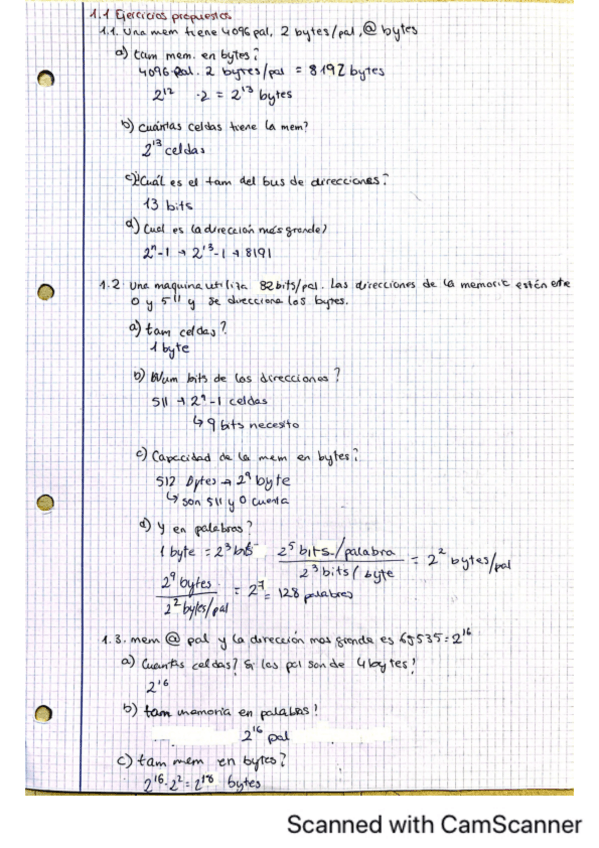 1.1 Ejercicios propuestos
1.1. Una mem tiene 4096 pal, 2 bytes/pal, @ bytes
a) tam mem. en bytes?
4096 pal. 2 bytes/pal = 8192 bytes
2¹² · 2 = 2¹³ bytes
b) Cuántas celdas tiene la mem?
2¹³ celdas
c) ¿Cuál es el tam del bus de direcciones?
13 bits
d) Cual es la dirección más grande?
2ⁿ-1 → 2¹³-1 → 8191
1.2 Una maquina utiliza 32 bits/pal. Las direcciones de la memoria están entre
0 y 511 y se direcciona los bytes.
a) tam celdas?
1 byte
b) Num bits de las direcciones?
511 → 2⁹-1 celdas
↳ 9 bits necesito
c) Capacidad de la mem en bytes?
512 bytes → 2⁹ byte
↳ son 511 y 0 cuenta
d) y en palabras?
1 byte = 2³ bits 2⁵ bits/palabra / 2³ bits/byte = 2² bytes/pal
2⁹ bytes / 2² bytes/pal = 2⁷ = 128 palabras
1.3. mem @ pal y la dirección mas grande es 65535 = 2¹⁶
a) Cuantas celdas? Si las pal son de 4 bytes?
2¹⁶
b) tam memoria en palabras?
2¹⁶ pal
c) tam mem en bytes?
2¹⁶ · 2² = 2¹⁸ bytes
Scanned with CamScanner